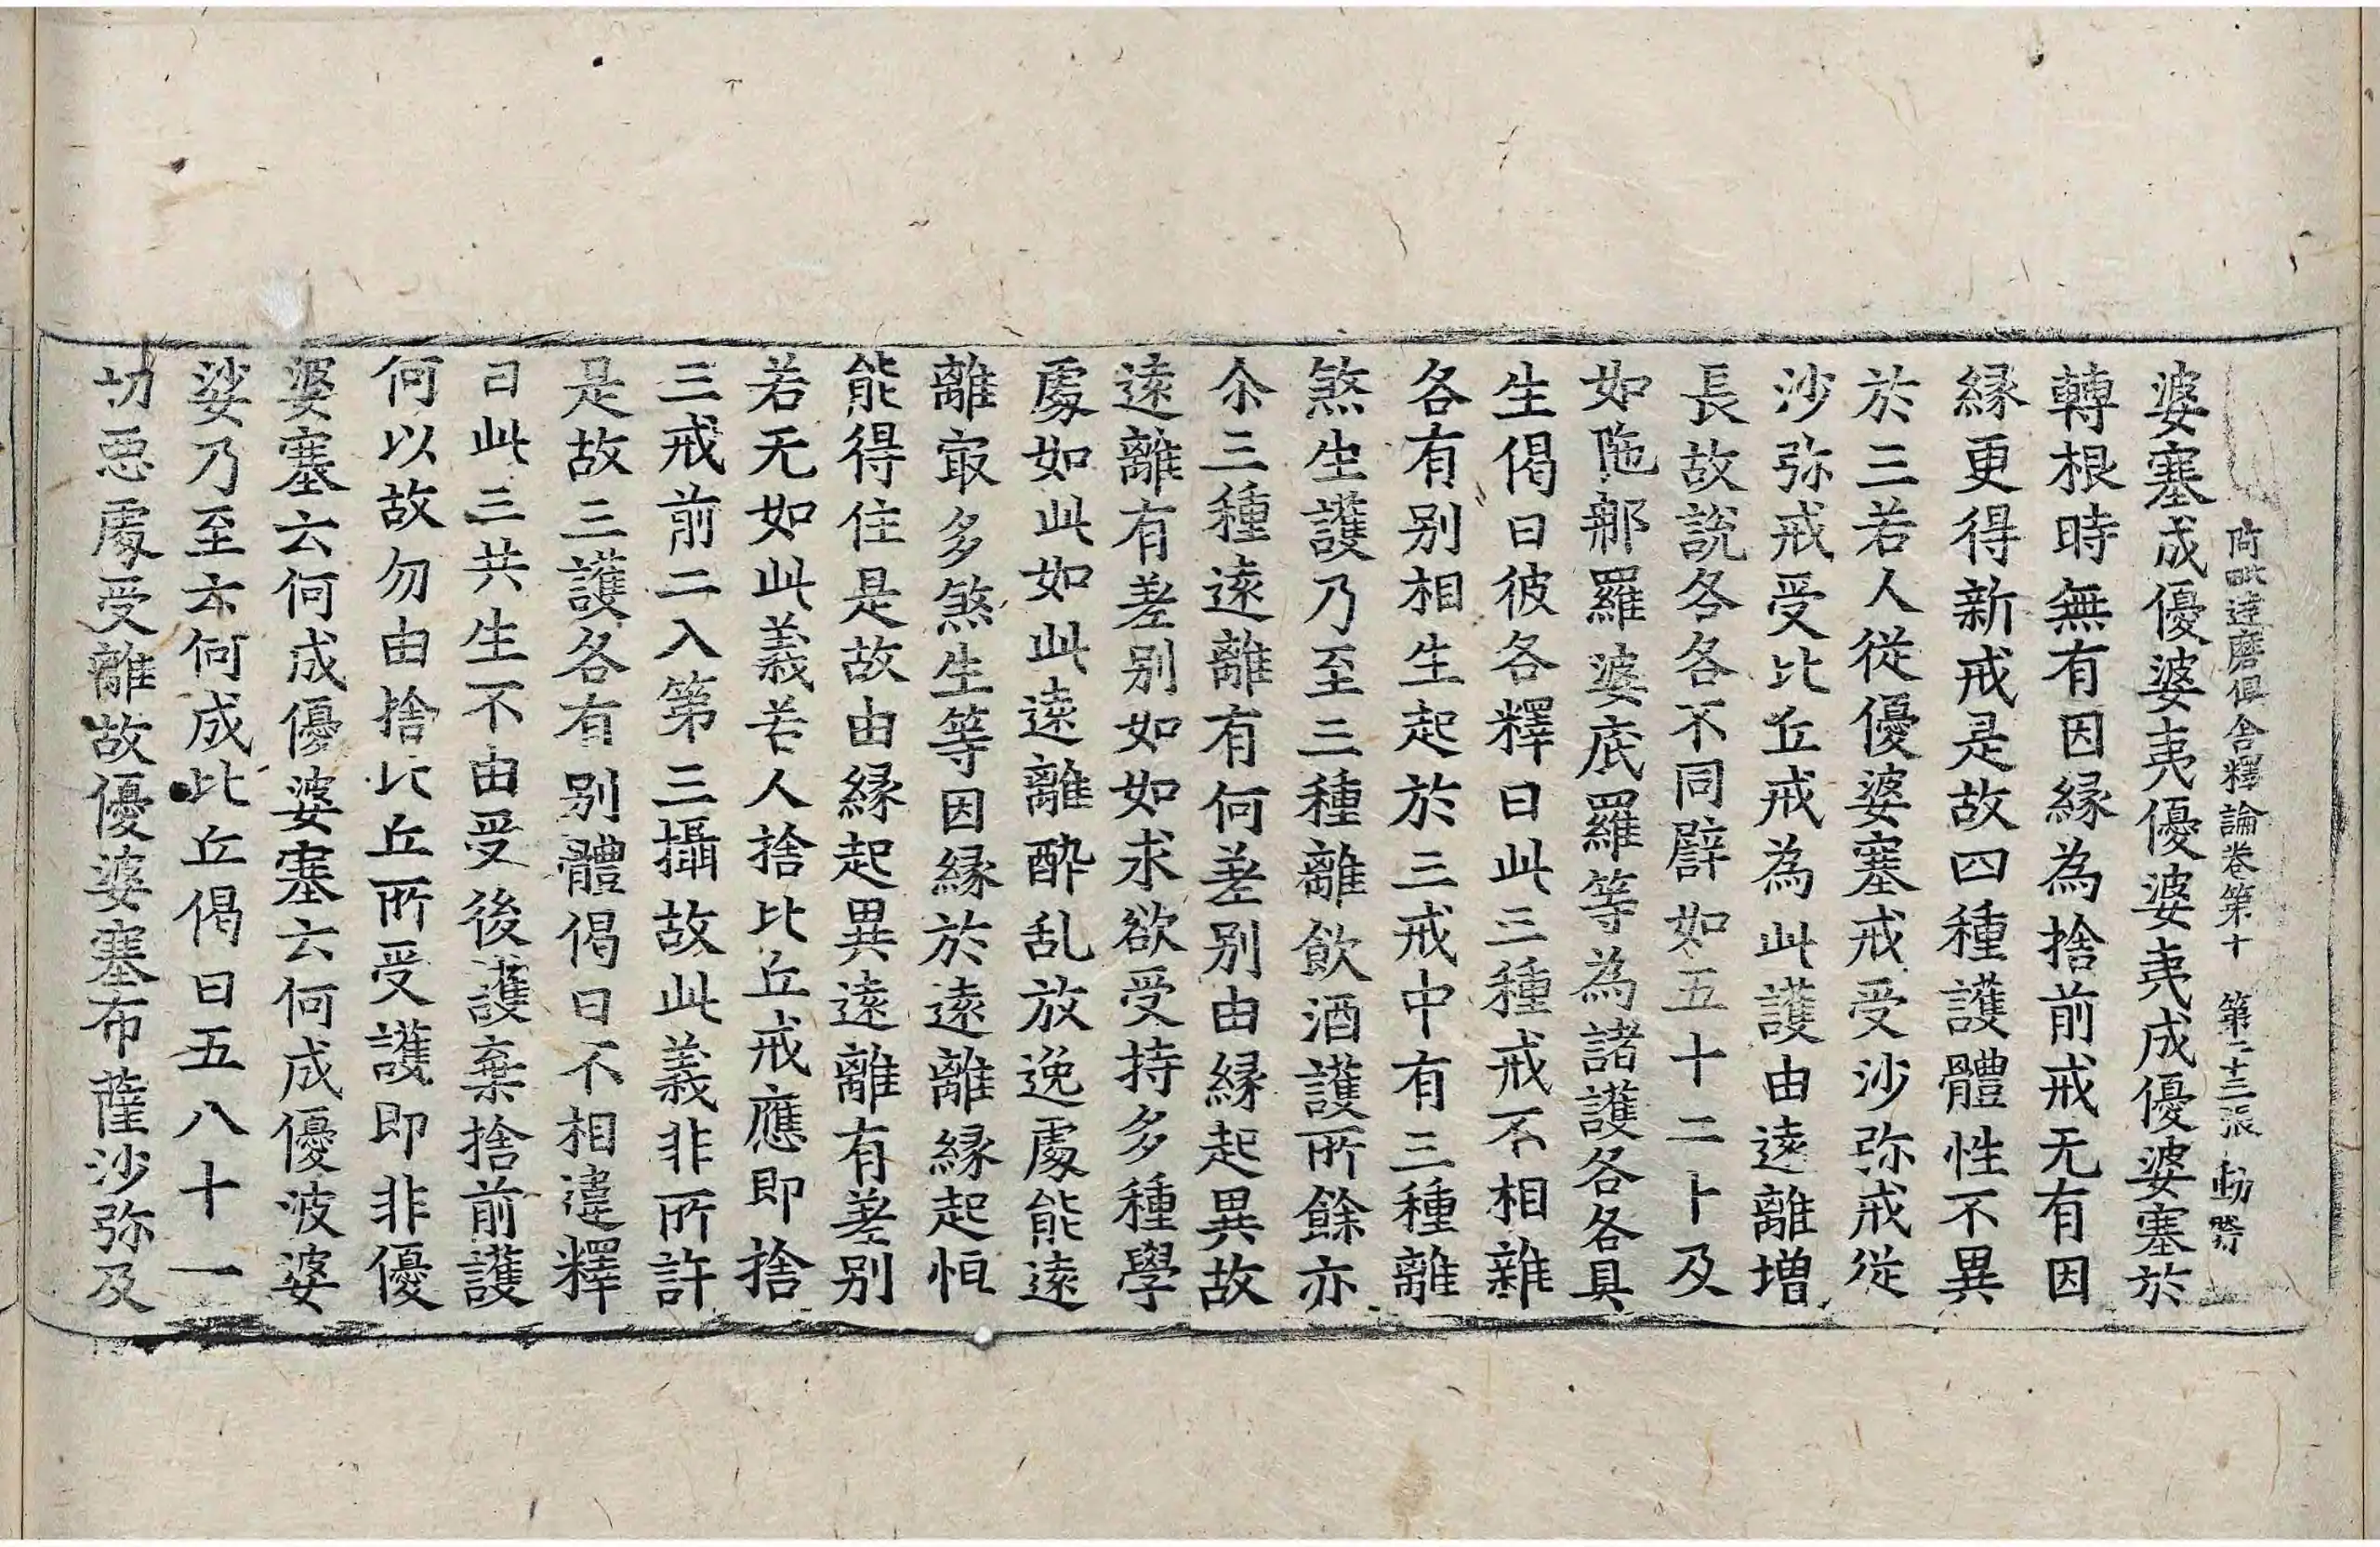 阿毗達磨俱舍釋論卷第十　第二十三張　動
婆塞成優婆夷優婆夷成優婆塞於
轉根時無有因緣為捨前戒无有因
緣更得新戒是故四種護體性不異
於三若人從優婆塞戒受沙弥戒從
沙弥戒受比丘戒為此護由遠離增
長故說各各不同譬如五十二十及
如陁那羅婆底羅等為諸護各各具
生偈曰彼各釋曰此三種戒不相雜
各有别相生起於三戒中有三種離
煞生護乃至三種離飲酒護所餘亦
尒三種遠離有何差别由緣起異故
遠離有差别如如求欲受持多種學
處如此如此遠離醉乱放逸處能遠
離㝡多煞生等因緣於遠離緣起恒
能得住是故由緣起異遠離有差别
若无如此義若人捨比丘戒應即捨
三戒前二入第三攝故此義非所許
是故三護各有别體偈曰不相違釋
曰此三共生不由受後護棄捨前護
何以故勿由捨比丘所受護即非優
婆塞云何成優婆塞云何成優波婆
娑乃至云何成比丘偈曰五八十一
切惡處受離故優婆塞布薩沙弥及